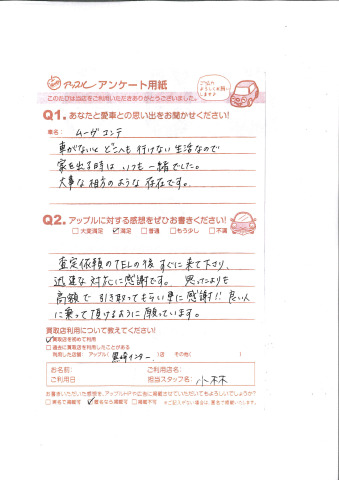 アップル アンケート用紙
このたびは当店をご利用いただきありがとうございました。
Q1. あなたと愛車との思い出をお聞かせください!
車名: ムーヴコンテ
車がないとどこへも行けない生活なので
家を出る時はいつも一緒でした。
大事な相方のような存在です。
Q2. アップルに対する感想をぜひお書きください!
□大変満足 ☑満足 □普通 □もう少し □不満
査定依頼のTELの後すぐに来て下さり、
迅速な対応に感謝です。思ったよりも
高額で引き取ってもらい更に感謝!!良い人
に乗って頂けるように願っています。
買取店利用について教えてください!
☑買取店を初めて利用
□過去に買取店を利用したことがある
利用した店舗: アップル( 黒崎インター )店 その他( )
お名前: ご利用店名:
ご利用日 担当スタッフ名: 小林
お書きいただいた感想を、アップルHPや広告に掲載させていただいてもよろしいでしょうか?
□実名で掲載可 ☑匿名なら掲載可 □掲載不可 ※ご記入がない場合は、匿名で掲載いたします。